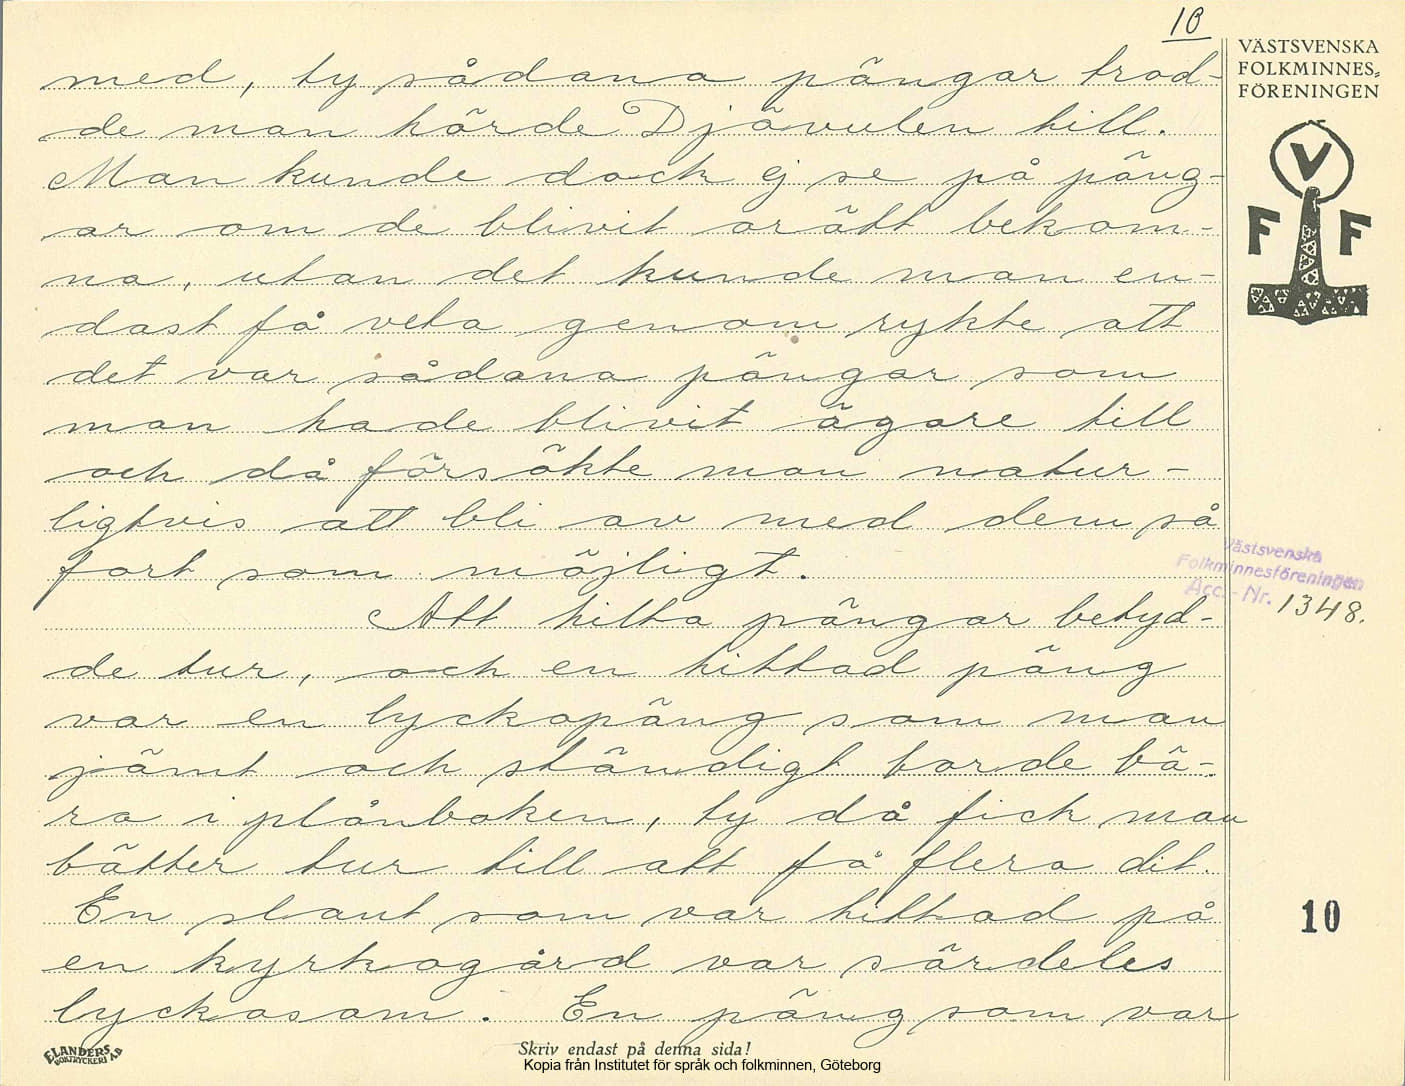 10
VÄSTSVENSKA
FOLKMINNES=
FÖRENINGEN
V
F F
med, ty sådana pängar trod-
de man hörde Djävulen till.
Man kunde dock ej se på päng-
ar om de blivit orätt bekom-
na, utan det kunde man en-
dast få veta genom rykte att
det var sådana pängar som
man hade blivit ägare till
och då försökte man natur-
ligtvis att bli av med dem så
fort som möjligt.
Västsvenska
Folkminnesföreningen
Acc.-Nr. 1348.
Att hitta pängar betyd-
de tur, och en hittad päng
var en lyckopäng som man
jämt och ständigt borde bä-
ra i plånboken, ty då fick man
bätter tur till att få flera dit.
En slant som var hittad på
en kyrkogård var särdeles
lyckosam. En päng som var
10
ELANDERS BOKTRYCKERI AB
Skriv endast på denna sida!
Kopia från Institutet för språk och folkminnen, Göteborg